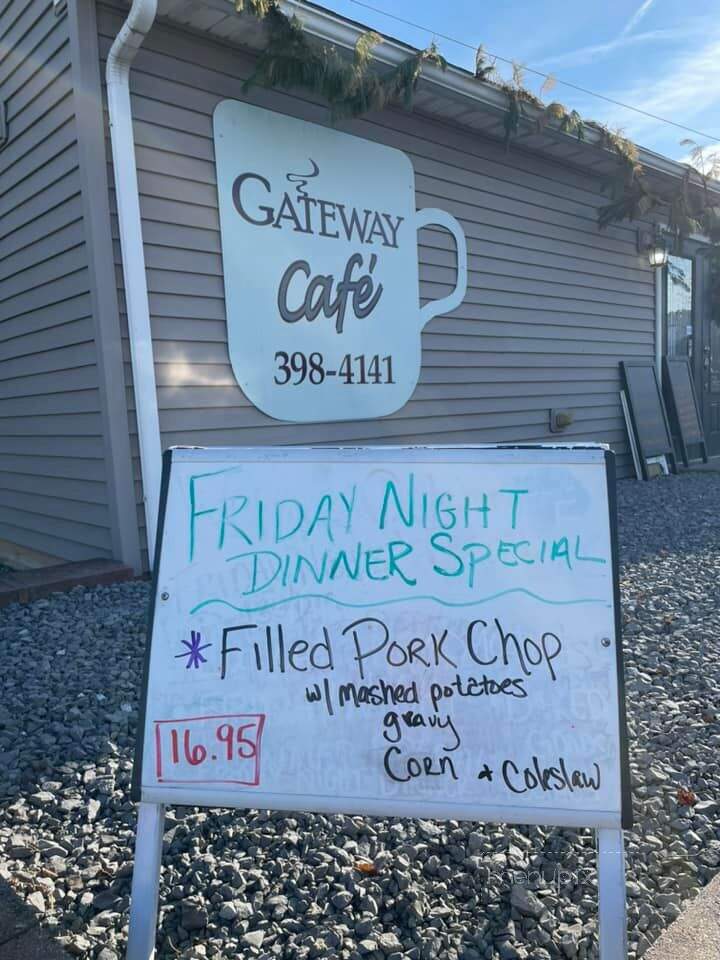 GATEWAY
Café
398-4141
FRIDAY NIGHT
DINNER SPECIAL
*Filled PORK Chop
w/ mashed potatoes
gravy
16.95
CORN + Coleslaw